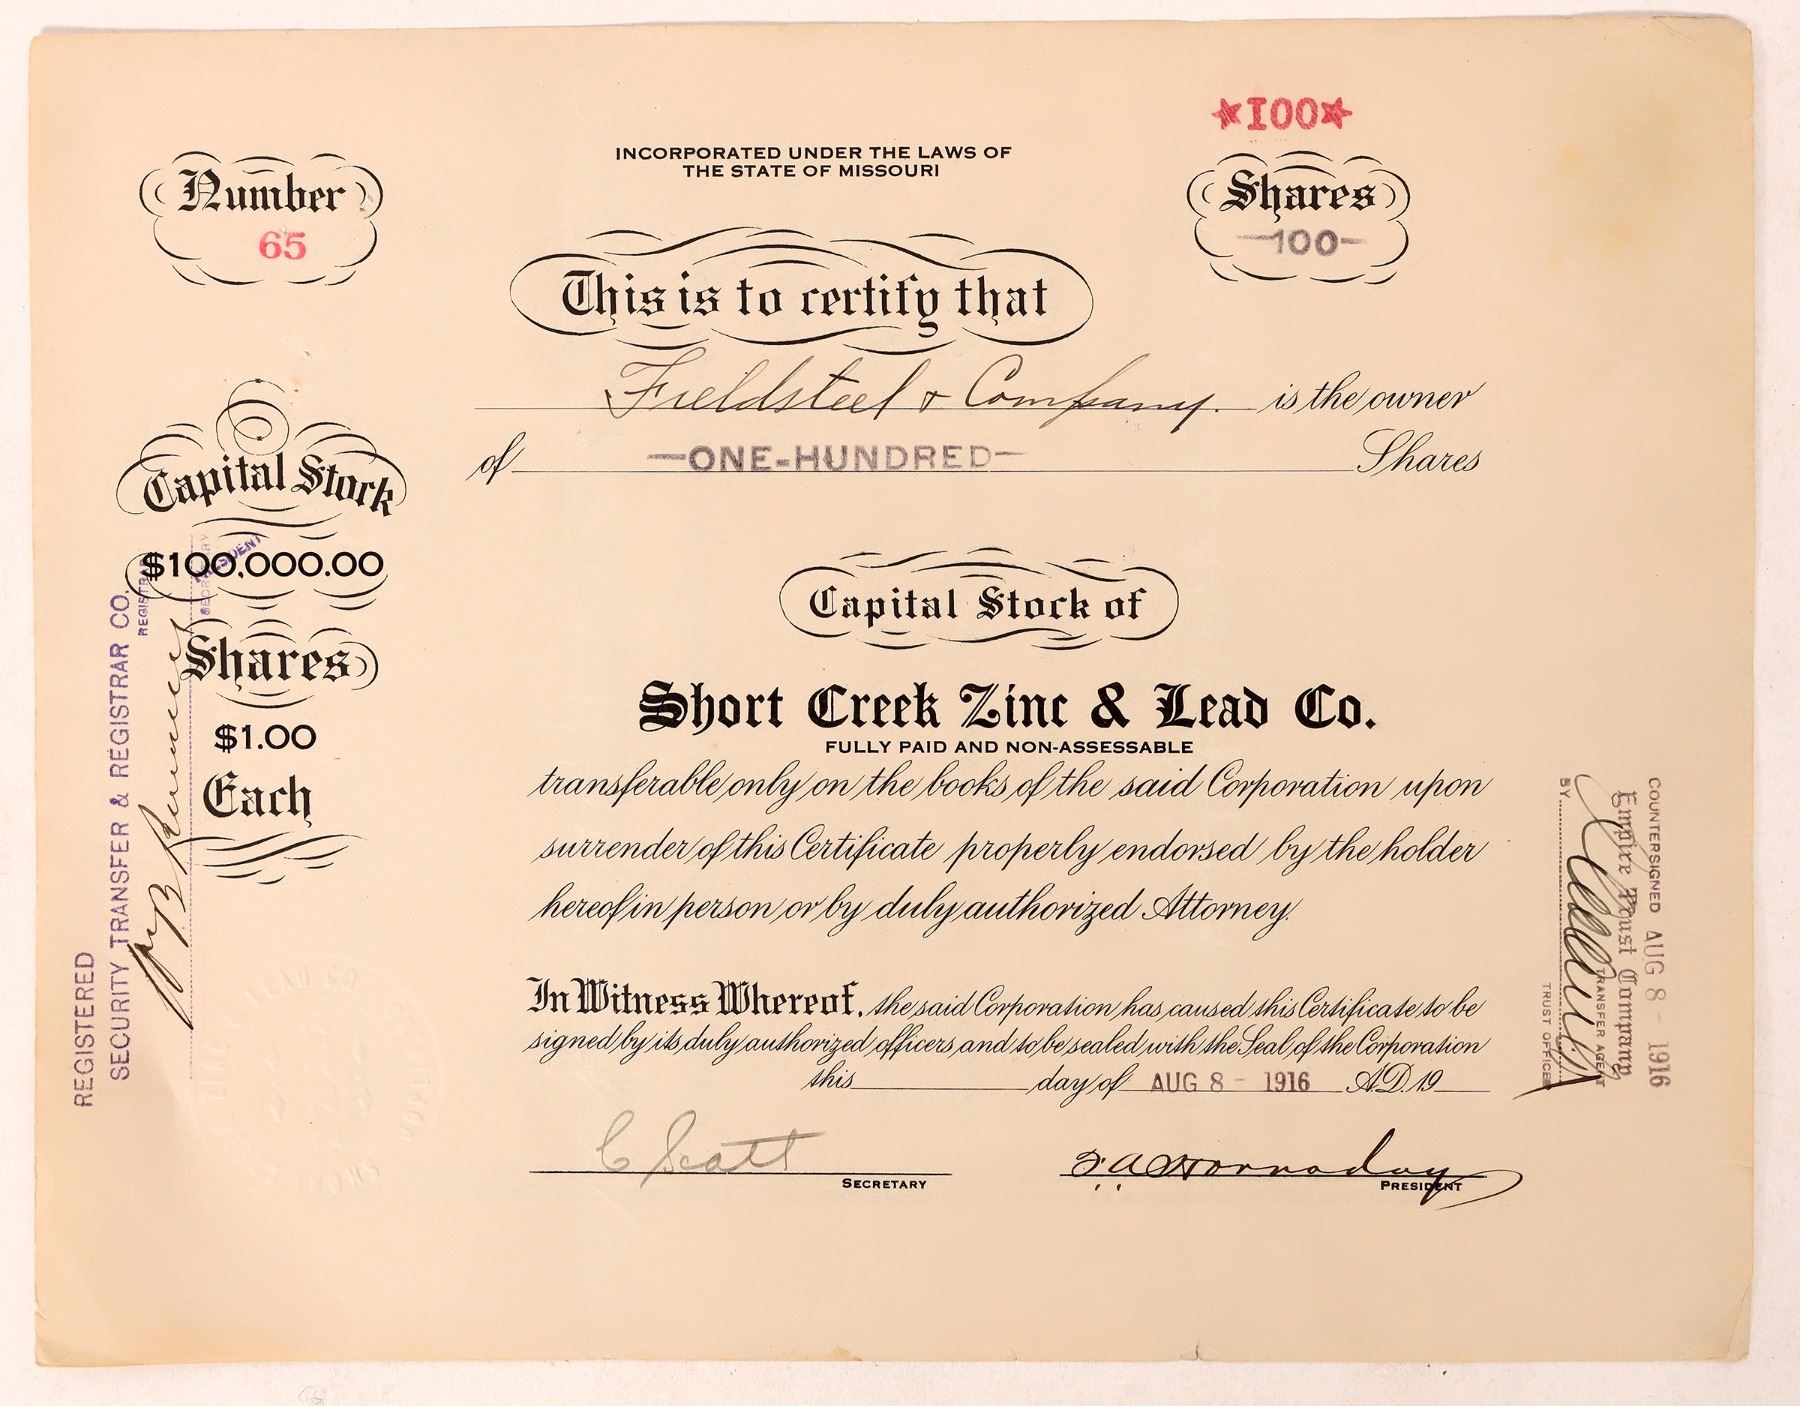 ★100★
INCORPORATED UNDER THE LAWS OF
THE STATE OF MISSOURI
Number
65
Shares
—100—
This is to certify that
Fieldsteel & Company. is the owner
of —ONE-HUNDRED— Shares
Capital Stock
$100,000.00
Shares
$1.00
Each
Capital Stock of
Short Creek Zinc & Lead Co.
FULLY PAID AND NON-ASSESSABLE
transferable only on the books of the said Corporation upon
surrender of this Certificate properly endorsed by the holder
hereof in person or by duly authorized Attorney.
In Witness Whereof, the said Corporation has caused this Certificate to be
signed by its duly authorized officers and to be sealed with the Seal of the Corporation
this day of AUG 8 - 1916 A.D. 19
C Scott
SECRETARY
F. A. Hornaday
PRESIDENT
REGISTERED
SECURITY TRANSFER & REGISTRAR CO.
REGISTRAR
SECRETARY
PRESIDENT
COUNTERSIGNED AUG 8 - 1916
Empire Trust Company
TRANSFER AGENT
BY
TRUST OFFICER